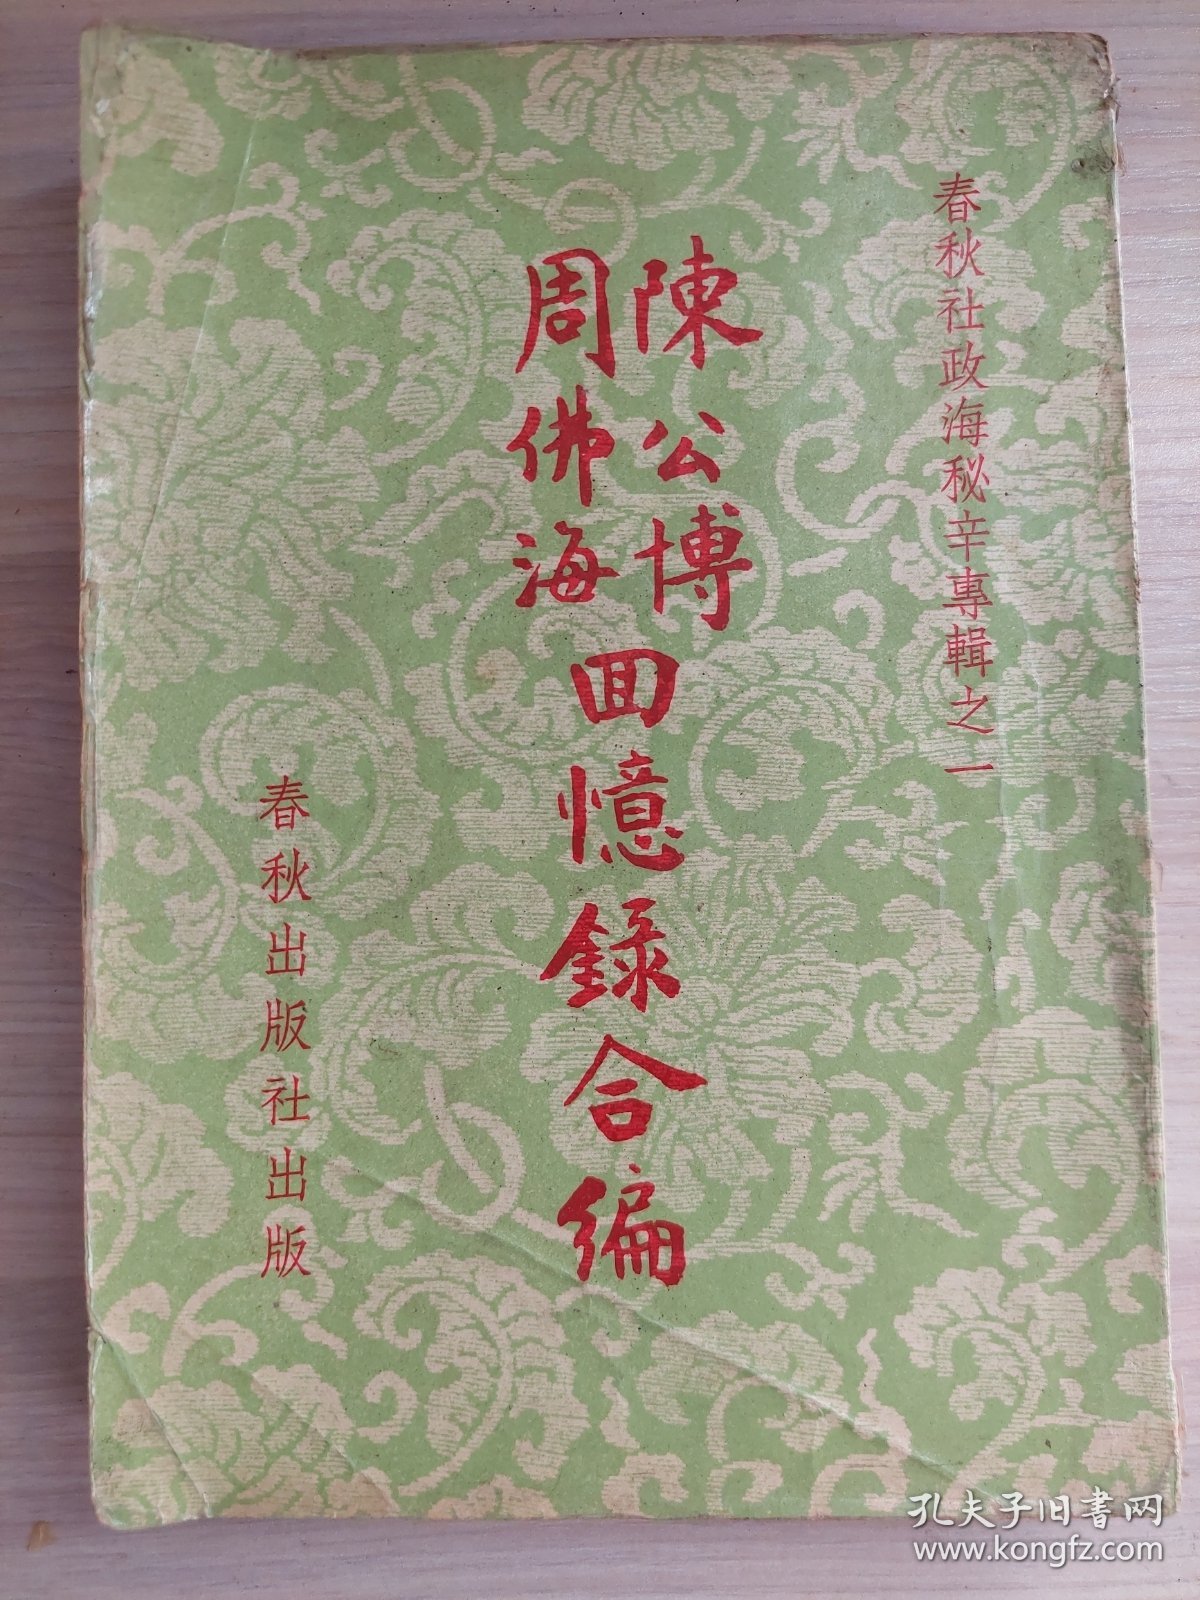 春秋社政海秘辛專輯之一
陳公博
周佛海
回憶錄合編
春秋出版社出版
孔夫子旧书网
www.kongfz.com